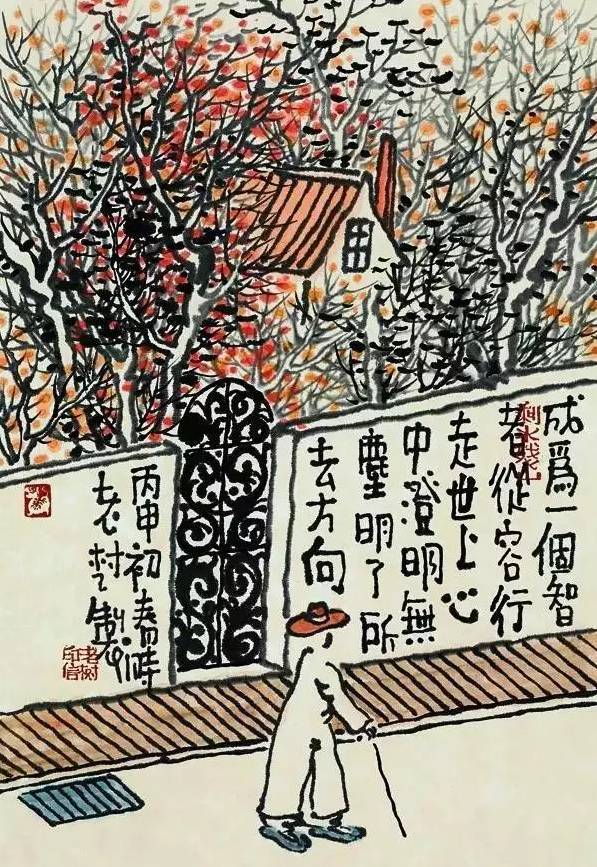 成爲一個智
者從容行
走世上心
中澄明無
塵明了所
去方向
丙申初春時
老树製
老树印信